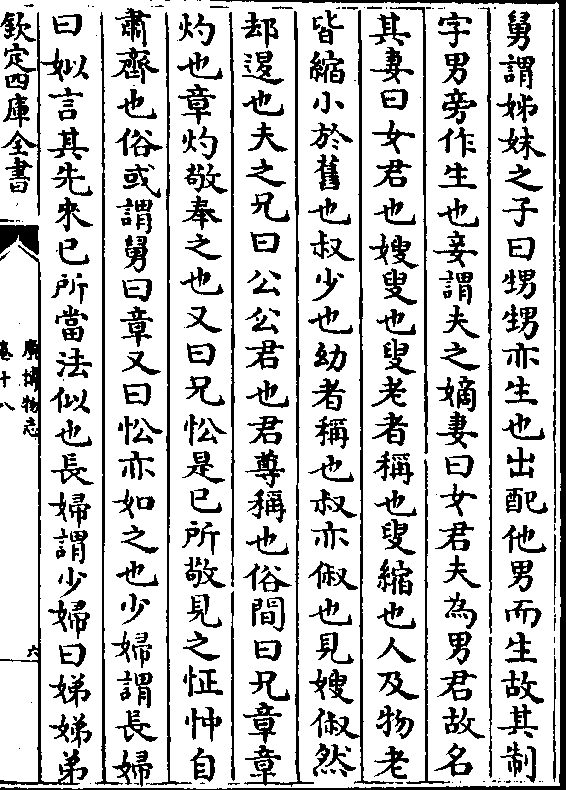 舅謂姊妹之子曰甥甥亦生也出配他男而生故其制
字男旁作生也妾謂夫之嫡妻曰女君夫為男君故名
其妻曰女君也嫂叟也叟老者稱也叟縮也人及物老
皆縮小於舊也叔少也幼者稱也叔亦俶也見嫂俶然
却退也夫之兄曰公公君也君尊稱也俗間曰兄章章
灼也章灼敬奉之也又曰兄忪是已所敬見之怔忡自
肅齊也俗或謂舅曰章又曰忪亦如之也少婦謂長婦
曰姒言其先來已所當法似也長婦謂少婦曰娣娣弟
欽定四庫全書
廣博物志
卷十八
六